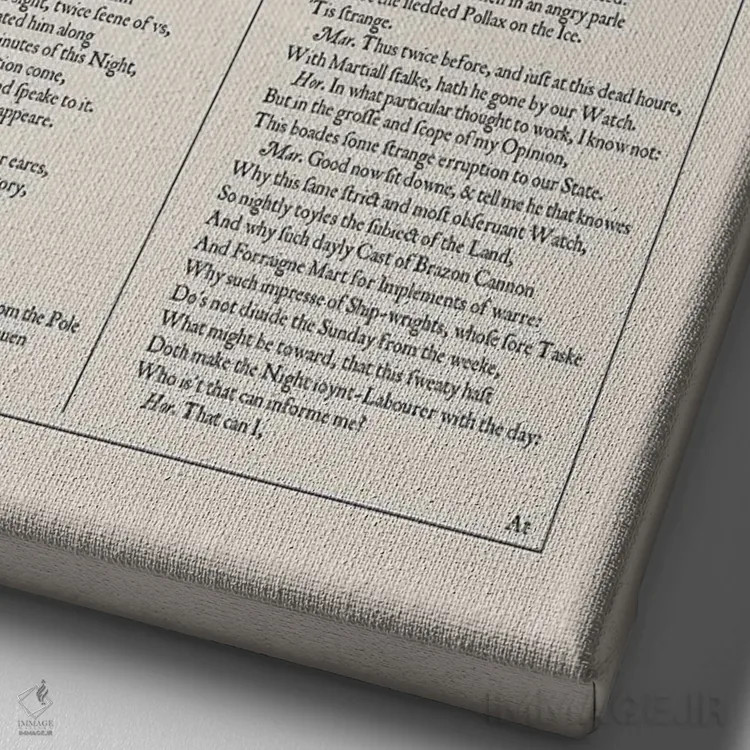 ight, twice ſeene of vs,
ated him along
inutes of this Night,
ion come,
d ſpeake to it.
ppeare.
r eares,
ory,
om the Pole
uen
in an angry parle
the ſledded Pollax on the Ice.
'Tis ſtrange.
Mar. Thus twice before, and iuſt at this dead houre,
With Martiall ſtalke, hath he gone by our Watch.
Hor. In what particular thought to work, I know not:
But in the groſſe and ſcope of my Opinion,
This boades ſome ſtrange erruption to our State.
Mar. Good now ſit downe, & tell me he that knowes
Why this ſame ſtrict and moſt obſeruant Watch,
So nightly toyles the ſubiect of the Land,
And why ſuch dayly Cast of Brazon Cannon
And Forraigne Mart for Implements of warre:
Why such impresse of Ship-wrights, whoſe ſore Taske
Do's not diuide the Sunday from the weeke,
What might be toward, that this ſweaty haſt
Doth make the Night ioynt-Labourer with the day:
Who is't that can informe me?
Hor. That can I,
At
IMMAGE
IMMAGE.IR
IMMAGE.IR